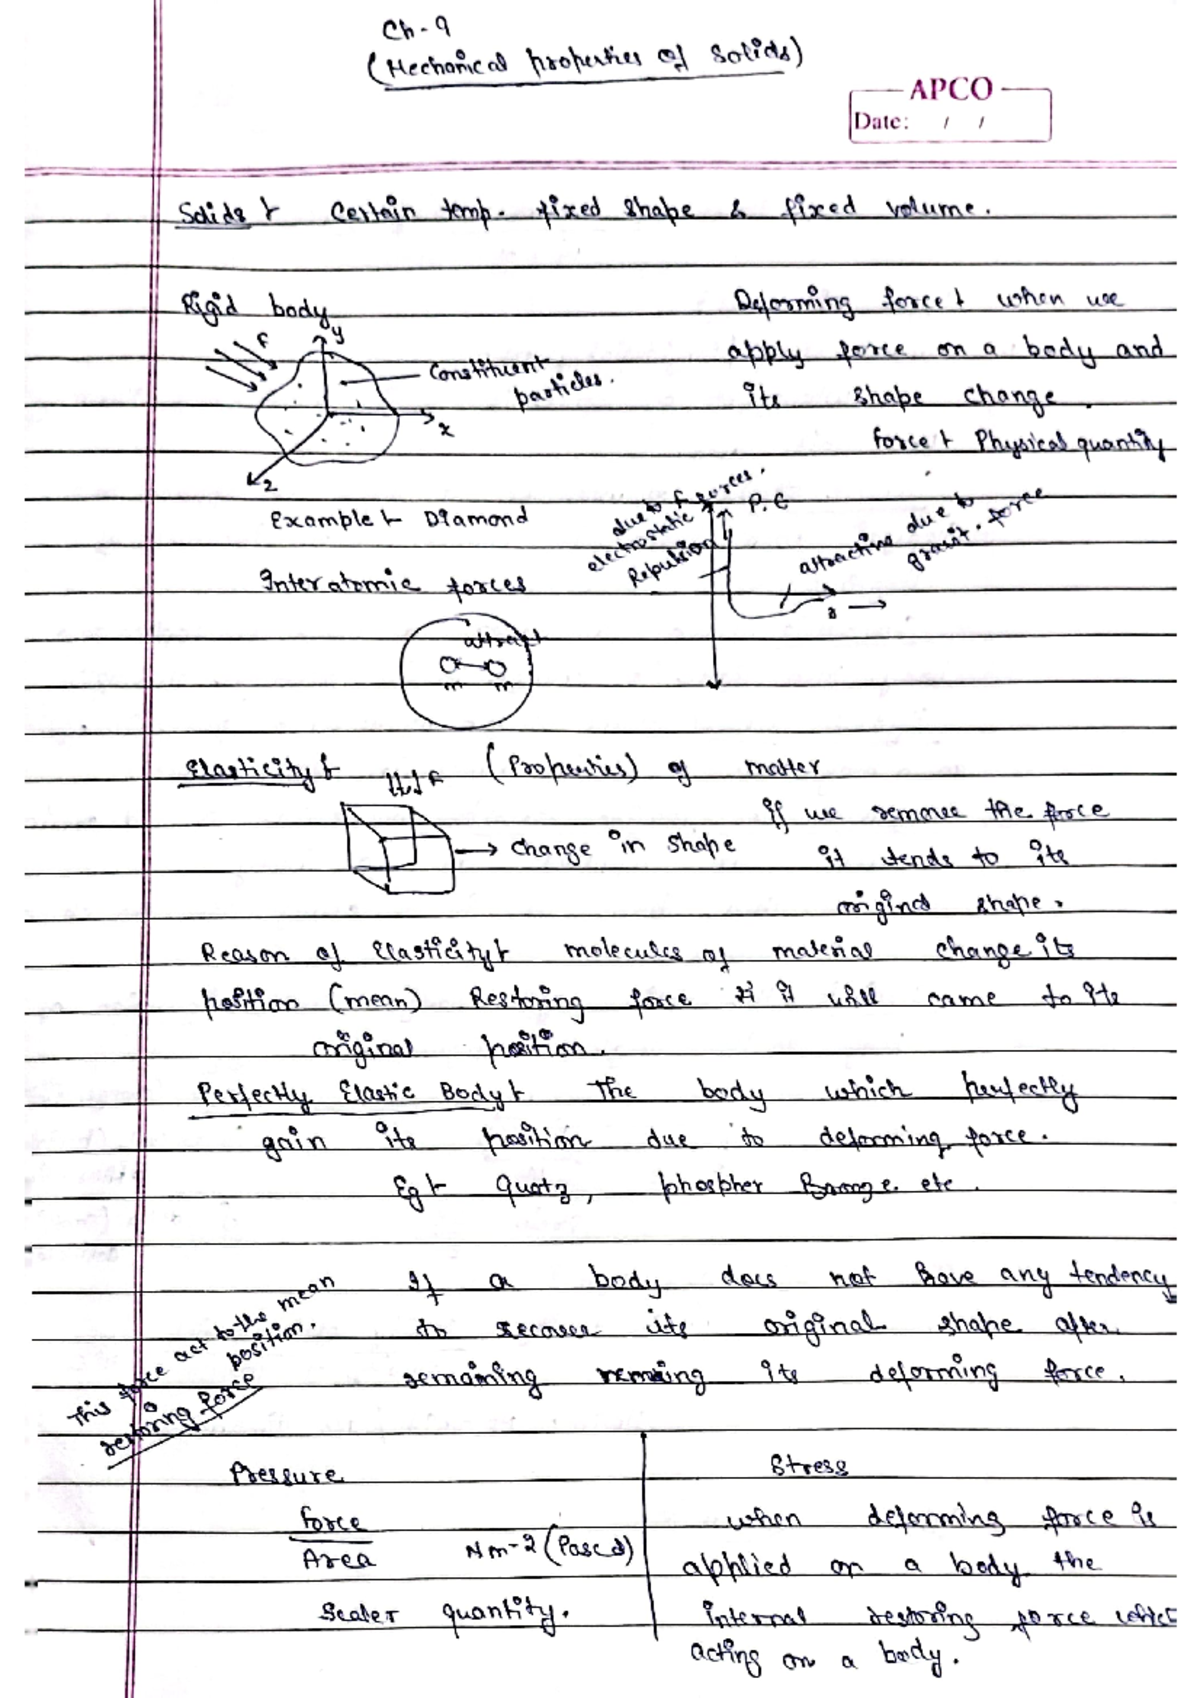 Ch-9
(Mechanical properties of Solids)
APCO
Date: / /
Solids :- Certain temp. fixed shape & fixed volume.
Rigid body
F
y
x
z
Constituent
particles.
Example :- Diamond
Deforming force :- when we
apply force on a body and
its shape change.
force :- Physical quantity
due to forces.
electrostatic
Repulsion
P.E
attracting due to
gravit. force
r
Interatomic forces
attract
m m
Elasticity :- F (Properties) of matter
→ change in shape
If we remove the force
it tends to its
original shape.
Reason of Elasticity :- molecules of material change its
position (mean) Restoring force से ये will came to its
original position.
Perfectly Elastic Body :- The body which perfectly
gain its position due to deforming force.
Eg :- Quatz, phospher Bronze etc.
If a body does not have any tendency
to recover its original shape after
remaining its deforming force.
This force act to the mean
position.
restoring force
Pressure
Force
Area
Nm-2 (Pascal)
Scaler quantity.
Stress
when deforming force is
applied on a body the
internal restoring force
acting on a body.